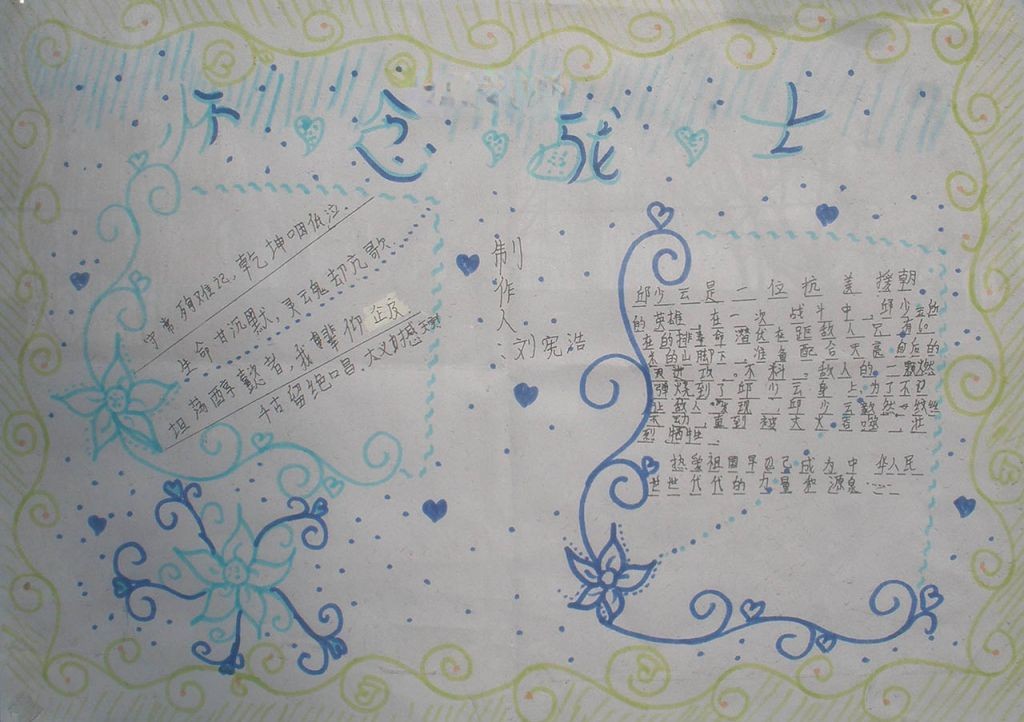 怀念战士
守常殉难记,乾坤咽低泣.
生命甘沉默,灵云鬼却亢歌
坦荡醇懿者,我辈仰
千古留绝唱
制作人:刘宪浩
邱少云是一位抗美援朝
的英雄,在一次战斗中,邱少云所
在的排奉命潜伏在距敌人只有60
米的山脚下,准备配合天黑自后的
进攻。不料,敌人的一颗燃
弹烧到了邱少云身上为了不
让敌人发现,邱少云毅然一丝丝
不动,直到被大火吞噬,壮
烈牺牲.
热爱祖国早已成为中华人民
世世代代的力量和源泉……